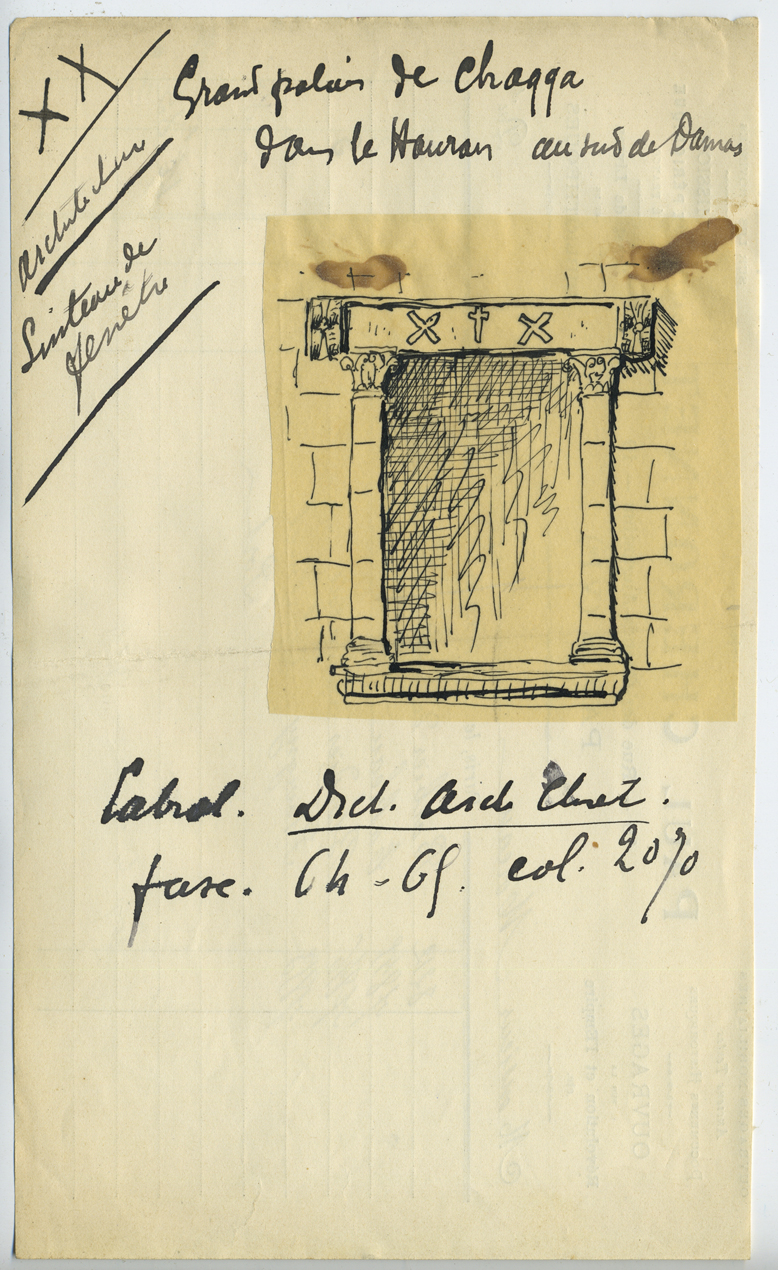 XX
Grand palais de Chaqqa
dans le Hauran au sud de Damas
Architecture
Linteau de
fenêtre
Cabrol. Dict. Arch Chret.
fasc. 64-65. col. 2070
OUVRAGES